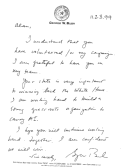 GEORGE W. BUSH
Adam,
I understand that you
have volunteered for my campaign.
I am grateful to have you on
my team.
Your state is very important
to winning back the White House
I am working hard to build a
strong grass roots organization to
carry
I hope you will continue working
hard together. I am confident
we will win.
Sincerely,